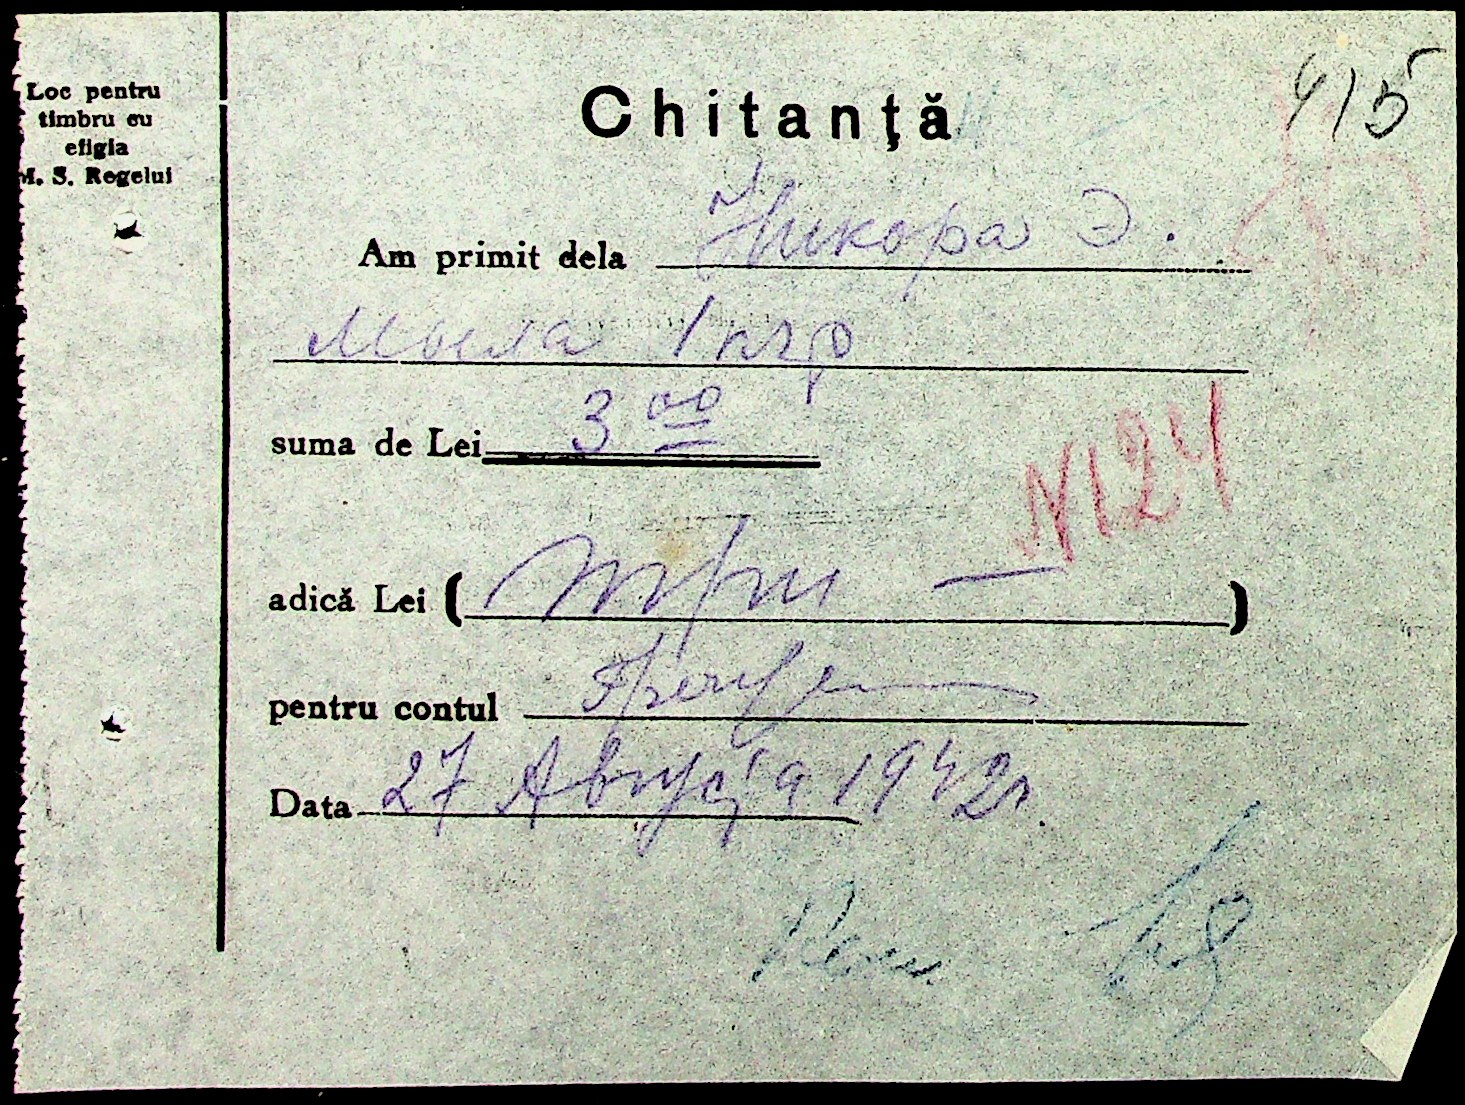 415
Loc pentru
timbru cu
efigia
M. S. Regelui
Chitanță
Am primit dela Никора Э.
Мыла 1 кгр
suma de Lei 3 00
N 124
adică Lei ( три — )
pentru contul
Data 27 Августа 1942 г.